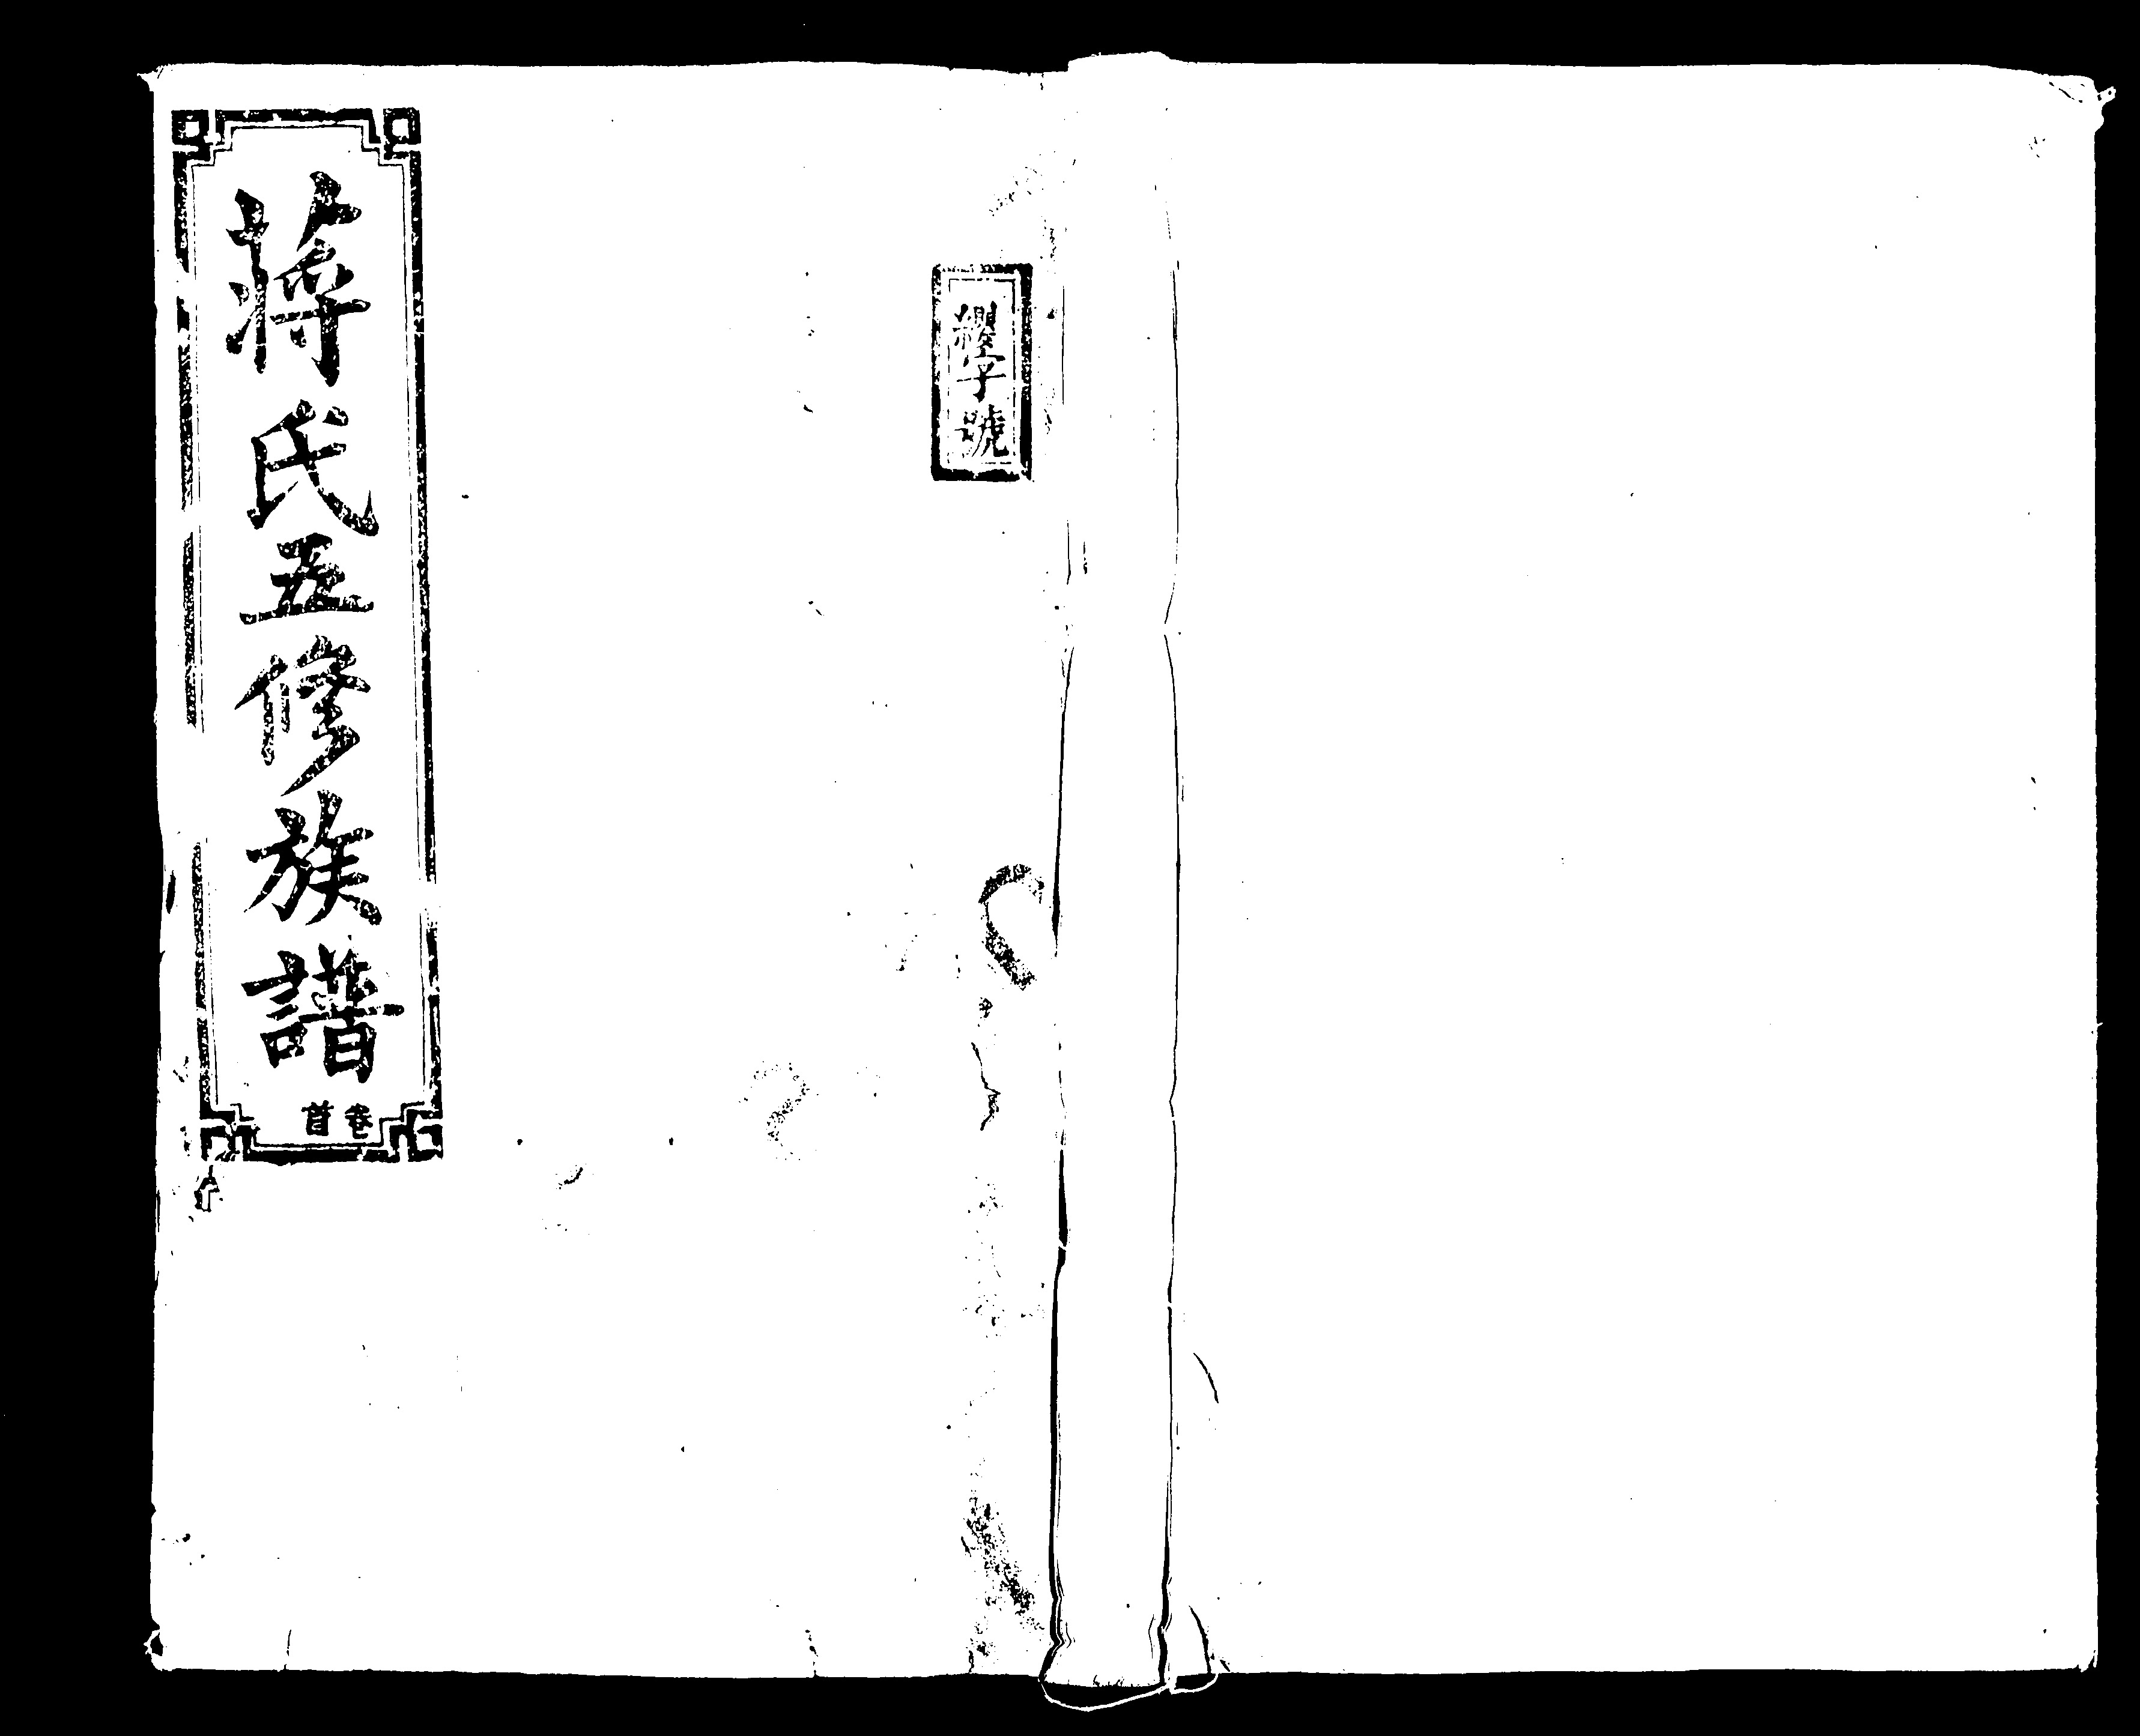 蔣氏五修族譜
卷首
纓字號